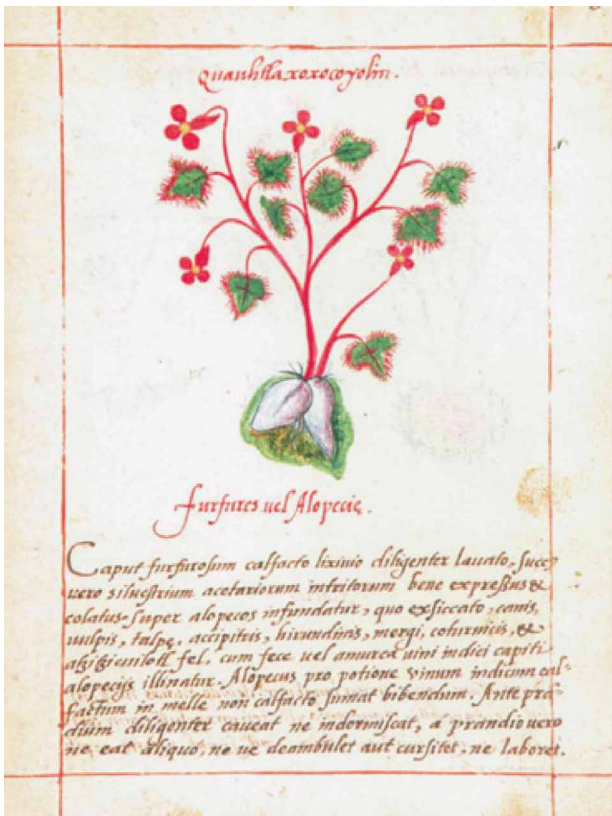 Quauhtlaxoxocoyolin.
Furfures vel Alopecie.
Caput furfurosum calfacto lixivio diligenter lauato, succꝰ
vero siluestrium acetariorum intritorum bene expreßus &
colatus super alopecos infundatur, quo exsiccato, canis,
vulpis, talpę, accipitris, hirundinis, mergi, coturnicis, &
atzitzicuilotl fel, cum fece uel amurca uini indici capiti
alopecijs illinatur. Alopecus pro potione vinum indicum cal-
factum in melle non calfacto sumat bibendum. Ante prā-
dium diligenter caueat ne indormiscat, a prandio uero
ne eat aliquo, ne ue deambulet aut cursitet, ne laboret.